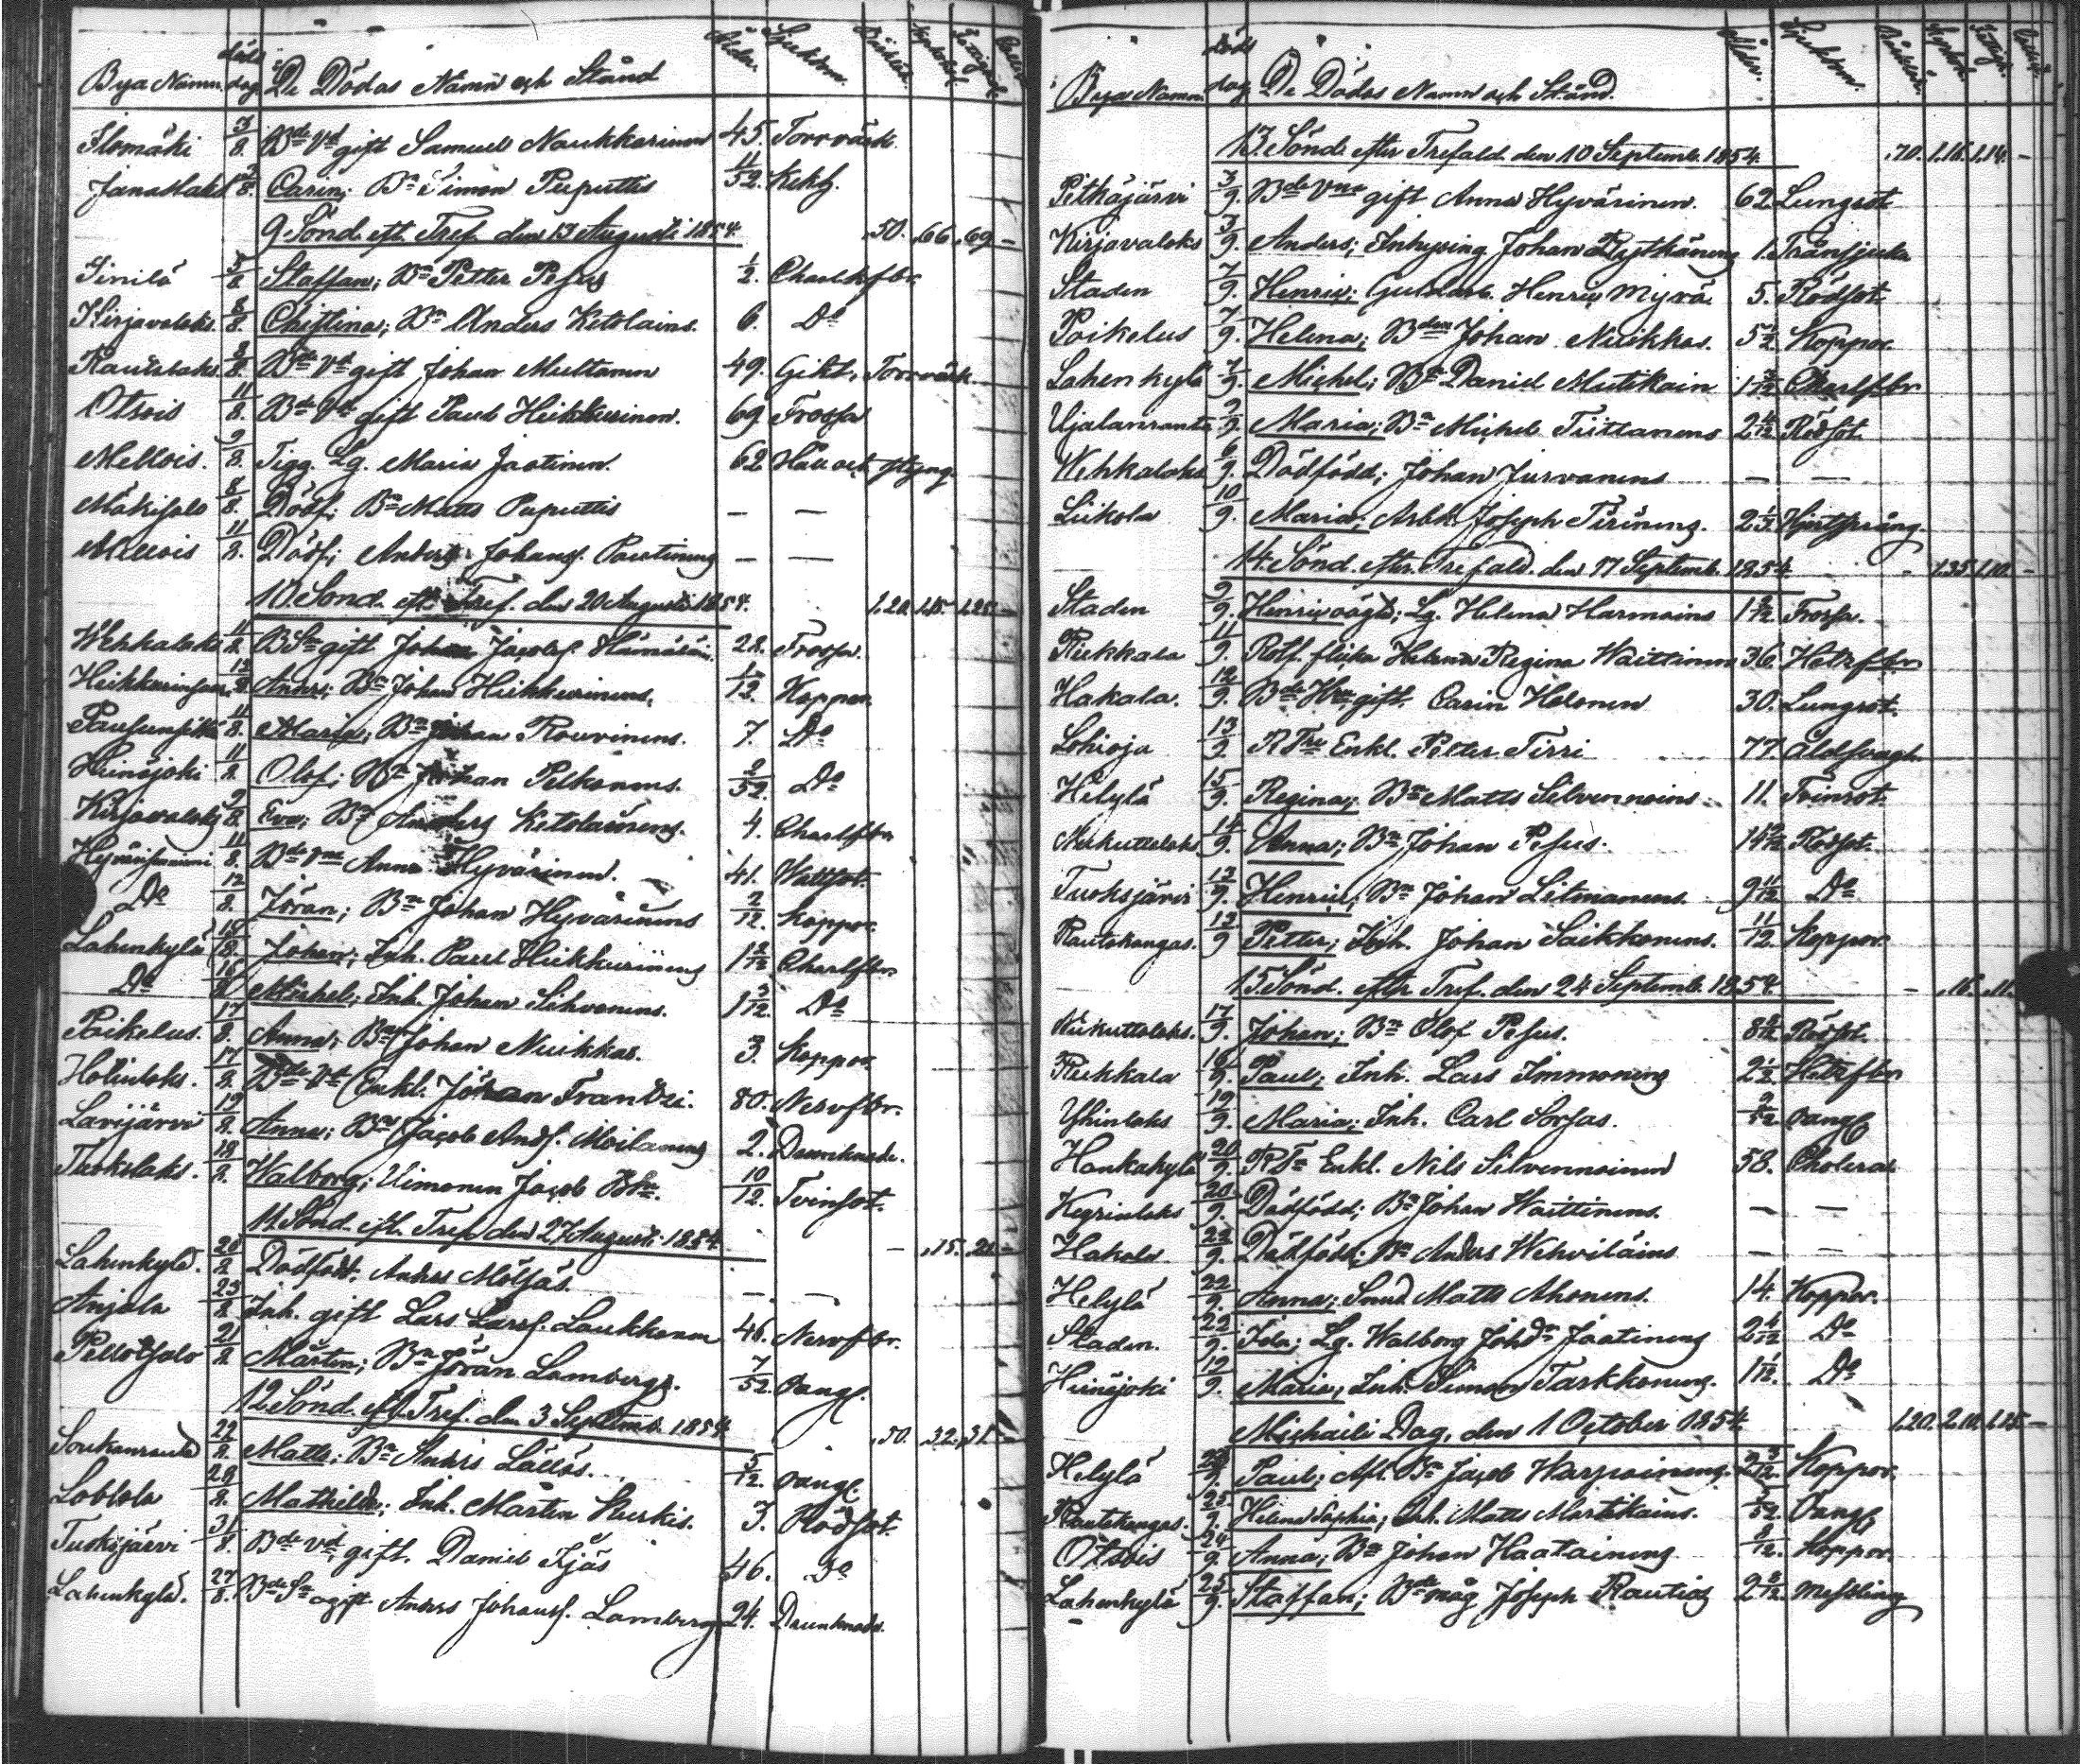 Bya Namn. döds dag De Dödas Namn och Stånd Ålder. Sjukdom.
Ilomäki 7/8. Bde Vd gift Samuel Naukkarinen 45. Torrvärk.
Janaslaks 2/8. Carin; Bn Simon Puputtis 11/52. Kikh.
9 Sönd. eft. Tref. den 13 Augusti 1854. ,50. ,66. ,69 –
Sinilä 5/8 Staffan; Bn Petter Pesus 1/2. Charlkfbr.
Kirjavalaks. 8/8. Christina; Bn Anders Ketolains. 6. Do
Rautalaks. 8/8. Bde Vd gift Johan Multanen 49. Gikt, Torrvärk.
Otsois 11/8. Bde Vd gift Paul Heikkurinen. 69 Frossa
Mellois. 9/8. Tigg. Lg. Maria Jaatinen. 62 Håll och styng.
Mäkisalo 8/8. Dödf; Bn Matts Puputtis – –
Mellois 11/8. Dödf; Anders Johansf. Pautinens – –
10 Sönd. eft. Tref. den 20 Augusti 1854. 1.20. 1.15. 1.25. –
Wehkalaks 11/8. BSn gift Johan Jacobsf. Hämäläin. 28. Frossa.
Heikkurinsaari 12/8. Anna; Bn Johan Heikkurinens. 1/12. Koppor.
11/8. Maria; Bn Johan Rouvinens. 7. Do
Heinäjoki 11/8. Olof; Bn Johan Pelkonens. 2/52. Do
Kirjavalaks 9/8. Eva; Bn Anders Ketolainens. 4. Charlkfbr.
11/8. Bde Vne Anna Hyvärinen. 41. Wattsot.
Do 12/8. Jöran; Bn Johan Hyvärinens 2/12. Koppor.
Lahenkylä 15/8. Johan; Inh. Paul Heikkurinens 1 2/12. Charlkfbr.
Do 16/8 Michel; Inh. Johan Sihvonens. 1 3/12. Do
Paikelus. 17/8. Anna; Bn Johan Nuikkas. 3. Koppor.
Holinlaks. 17/8. Bde Vd Enkl. Johan Frantzi. 80. Nervfbr.
Larijärvi 19/8. Anna; Bn Jacob Andsf. Moilanens 2. Drunknade.
Tuokslaks. 18/8. Walborg; Uimonen Jacob BSn. 10/12. Tvinsot.
11 Sönd. eft. Tref. den 27 Augusti 1854. – ,15. ,21 –
Lahenkylä. 20/8 Dödfödt; Anders Mölsäs. – –
Anjala 23/8 Inh. gift Lars Larsf. Laukkanen 46. Nervfbr.
Pellotsalo 21/8 Mårten; Bn Jöran Lambergs. 7/52. Oangf.
12 Sönd. eft. Tref. den 3 Septemb. 1854. ,50. ,32. ,31. –
Soukanranta 22/8. Matts; Bn Anders Lällös. 5/12. Oangf.
28/8. Mathilda; Inh. Mårten Kurkis. 3. Rödsot.
Tuoksjärvi 31/8. Bde Vd gift. Daniel Ijäs 46. Do
Lahenkylä. 27/8. Bde Sn ogift Anders Johansf. Lamberg 24. Drunknade.
Bya Namn. Döds dag De Dödas Namn och Stånd. Ålder. Sjukdom.
13. Sönd. efter Trefald. den 10 Septemb. 1854. ,70. 1.16. 1.14. –
Pitkäjärvi 3/9. Bde Vne gift Anna Hyvärinen. 62 Lungsot
Kirjavalaks 3/9. Anders; Inhysing Johan Pystkänens 1. Tränsjuka
Staden 7/9. Henric; Guldarb. Henric Myrä 5. Rödsot.
Paikelus 7/9. Helena; Bden Johan Nuikkas. 5 1/2. Koppor.
Lahenkylä 7/9. Michel; Bn Daniel Mutikain 1 3/12 Charlkfbr
Ujalanranta 9/9. Maria; Bn Michel Tiittanens 2 4/12 Rödsot.
Wehkalaks 6/9. Dödfödd; Johan Jurvanens – –
Liikola 10/9. Maria; Arbk. Joseph Tirinens. 2 1/2. Hjertsprång.
14. Sönd. efter Trefald. den 17 Septemb. 1854. – 1.35. 1.10. –
Staden 9/9. Henric oägta; Lg. Helena Harmoins 1 9/12 Frossa.
Riekkala 11/9. Rotf. flicka Helena Regina Waittinen 36. Hetsfbr
Hakala. 12/9. Bde Hru gift. Carin Holonen 30. Lungsot.
Lohioja 13/9. Enkl. Petter Tirri 77. Åldsvagh.
Helylä 15/9. Regina; Bn Matts Silvennoins. 11. Tvinsot.
14/9. Anna; Bn Johan Pesus. Rödsot.
Tuoksjärvi 12/9. Henric; Bn Johan Litmanens. 9 11/12 Do
Rautakangas. 13/9 Petter; Inh. Johan Saikkonens. 11/12. Koppor.
15 Sönd. efter Tref. den 24 Septemb. 1854. – ,16. ,11.
17/9. Johan; Bn Olof Pesus. Rödsot.
Riekkala 16/9. Paul; Inh. Lars Immonens 2 1/2. Hetsfbr
Yhinlaks 19/9. Maria; Inh. Carl Sorsas. Oangf
Hankakylä 20/9. Enkl. Nils Silvennoinen 58. Cholera
20/9. Dödfödd; Bn Johan Waittinens. – –
Hakala. 22/9. Dödfödd; Bn Anders Wehviläins – –
Helylä 22/9. Anna; Smed. Matts Ahonens. 14. Koppor.
Staden. 22/9. Ida; Lg. Walborg Johdr. Jaatinens 2 4/12 Do
Heinäjoki 19/9. Maria; Inh. Simon Tarkkonens. 1 1/12. Do
Michaeli Dag, den 1 October 1854. 1.20. 2.10. 1.25. –
Helylä Paul; Afl. Bn Jacob Warpainens. 2 3/12. Koppor.
Rautakangas. 25/9. Helena Sophia; Inh. Matts Martikains. Oangf
Otsois 24/9. Anna; Bn Johan Haatainens 8/12. Koppor.
Lahenkylä 25/9. Staffan; Bde måg Joseph Rautias 2 8/12. Messling